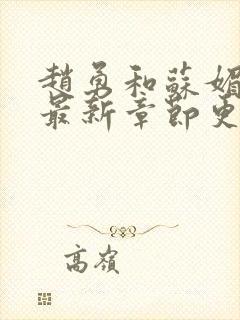 趙勇和蘇媚
最新章節更
高嶺